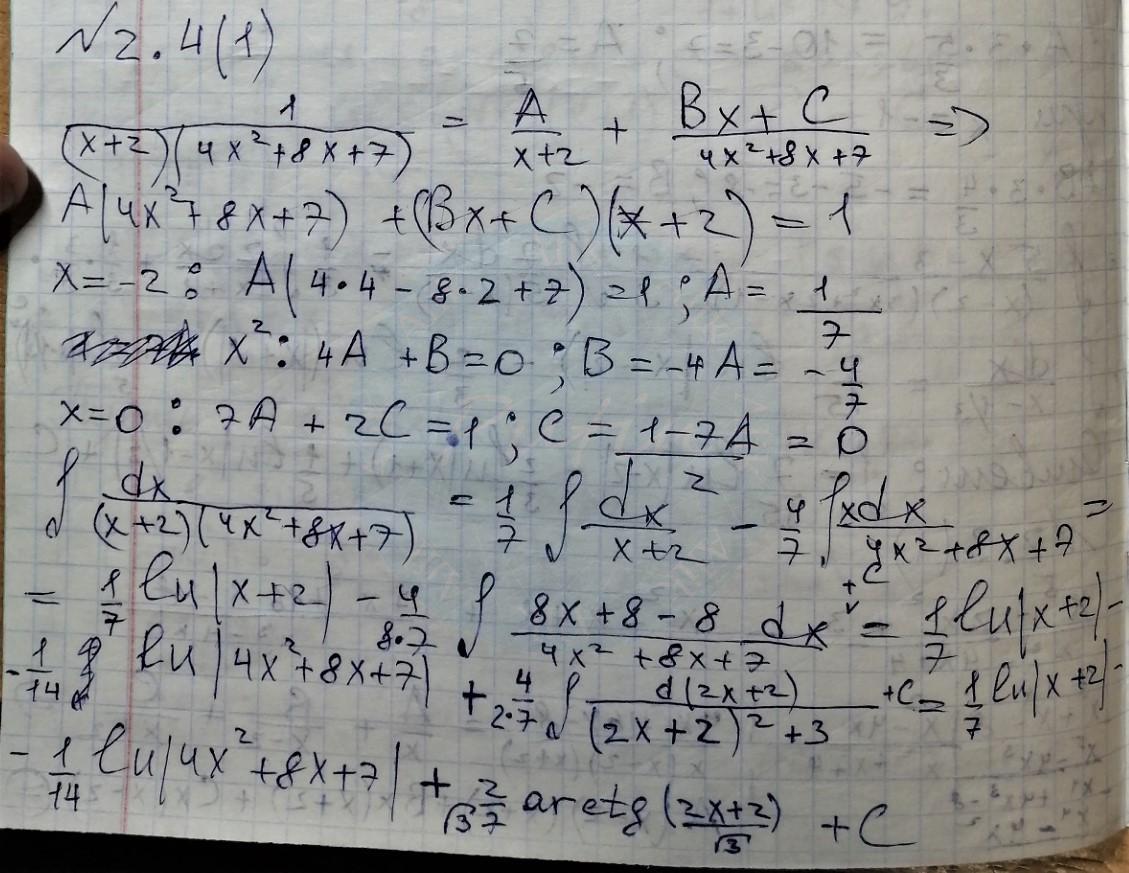 №2.4(1)
1/((x+2)(4x²+8x+7)) = A/(x+2) + (Bx+C)/(4x²+8x+7) =>
A(4x²+8x+7) + (Bx+C)(x+2) = 1
x=-2: A(4·4-8·2+7)=1; A= 1/7
x²: 4A+B=0; B=-4A= -4/7
x=0: 7A+2C=1; C= (1-7A)/2 = 0
∫ dx/((x+2)(4x²+8x+7)) = 1/7 ∫ dx/(x+2) - 4/7 ∫ xdx/(4x²+8x+7) =
= 1/7 ln|x+2| - 4/(8·7) ∫ (8x+8-8)/(4x²+8x+7) dx +C = 1/7 ln|x+2| -
- 1/14 ln|4x²+8x+7| + 4/(2·7) ∫ d(2x+2)/((2x+2)²+3) +C = 1/7 ln|x+2| -
- 1/14 ln|4x²+8x+7| + 2/(√3 7) arctg((2x+2)/√3) + C